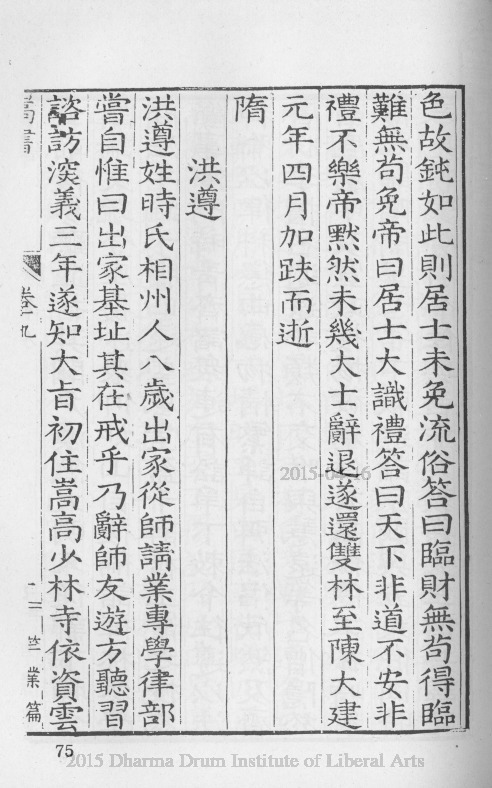 色故鈍如此則居士未免流俗答曰臨財無苟得臨
難無苟免帝曰居士大識禮答曰天下非道不安非
禮不樂帝默然未幾大士辭退遂還雙林至陳大建
元年四月加趺而逝
隋
洪遵
洪遵姓時氏相州人八歲出家從師請業專學律部
嘗自惟曰出家基址其在戒乎乃辭師友遊方聽習
諮訪深義三年遂知大旨初住嵩高少林寺依資雲
嵩書 卷十九 二 竺業篇
75
2015 Dharma Drum Institute of Liberal Arts